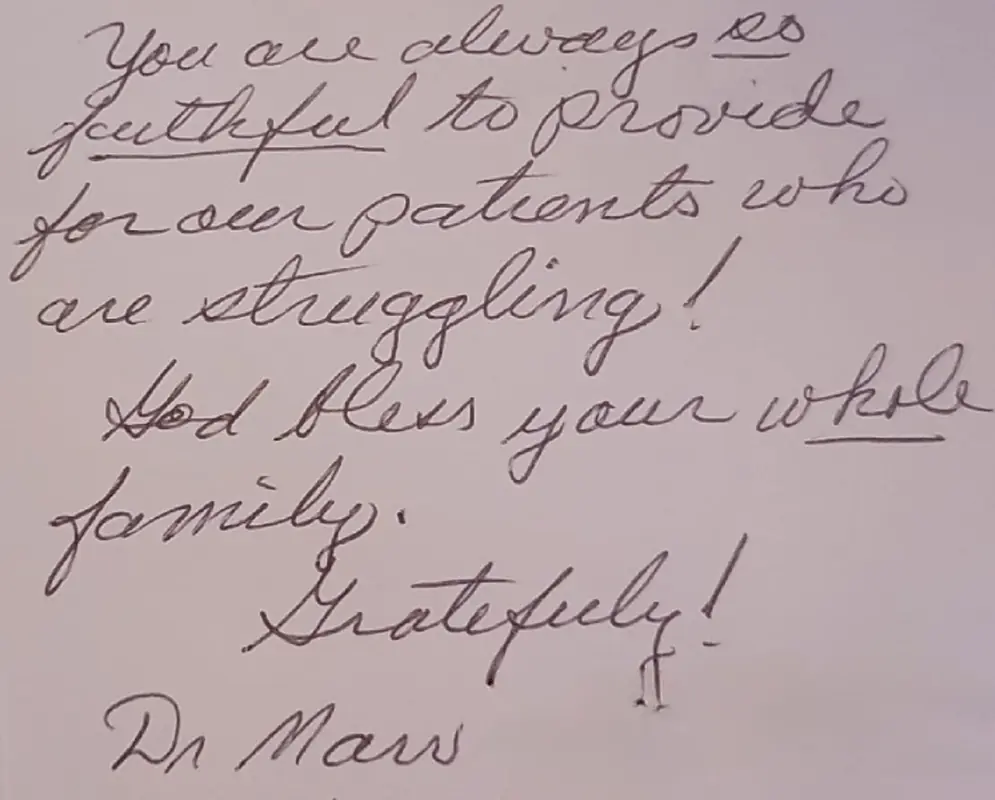 You are always so
faithful to provide
for our patients who
are struggling!
God bless your whole
family.
Gratefuly!
Dr